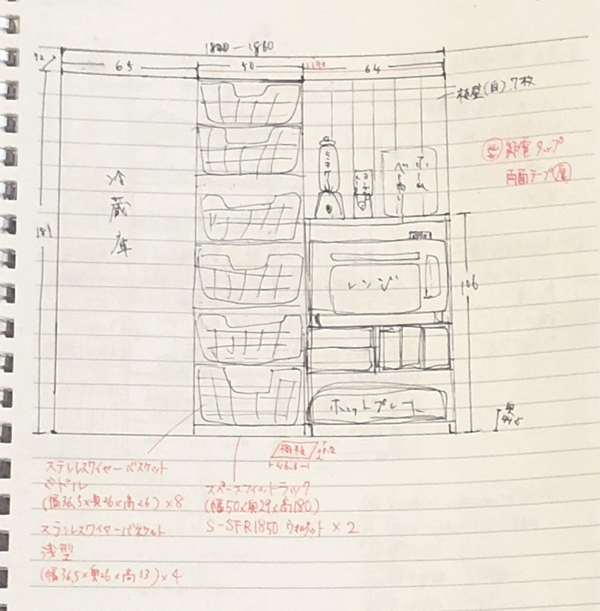 1820-1860
65
50
64
冷
蔵
庫
板壁(白)7枚
節電タップ
両面テープ
ミキサー
ホーム
ベーカリー
レンジ
106
ホットプレート
棚板
ステンレスワイヤーバスケット
ミドル
(幅36.5×奥26×高26)×8
ステンレスワイヤーバスケット
浅型
(幅36.5×奥26×高13)×4
スペースフィットラック
(幅50×奥29×高180)
S-SFR1850 ウォルナット×2